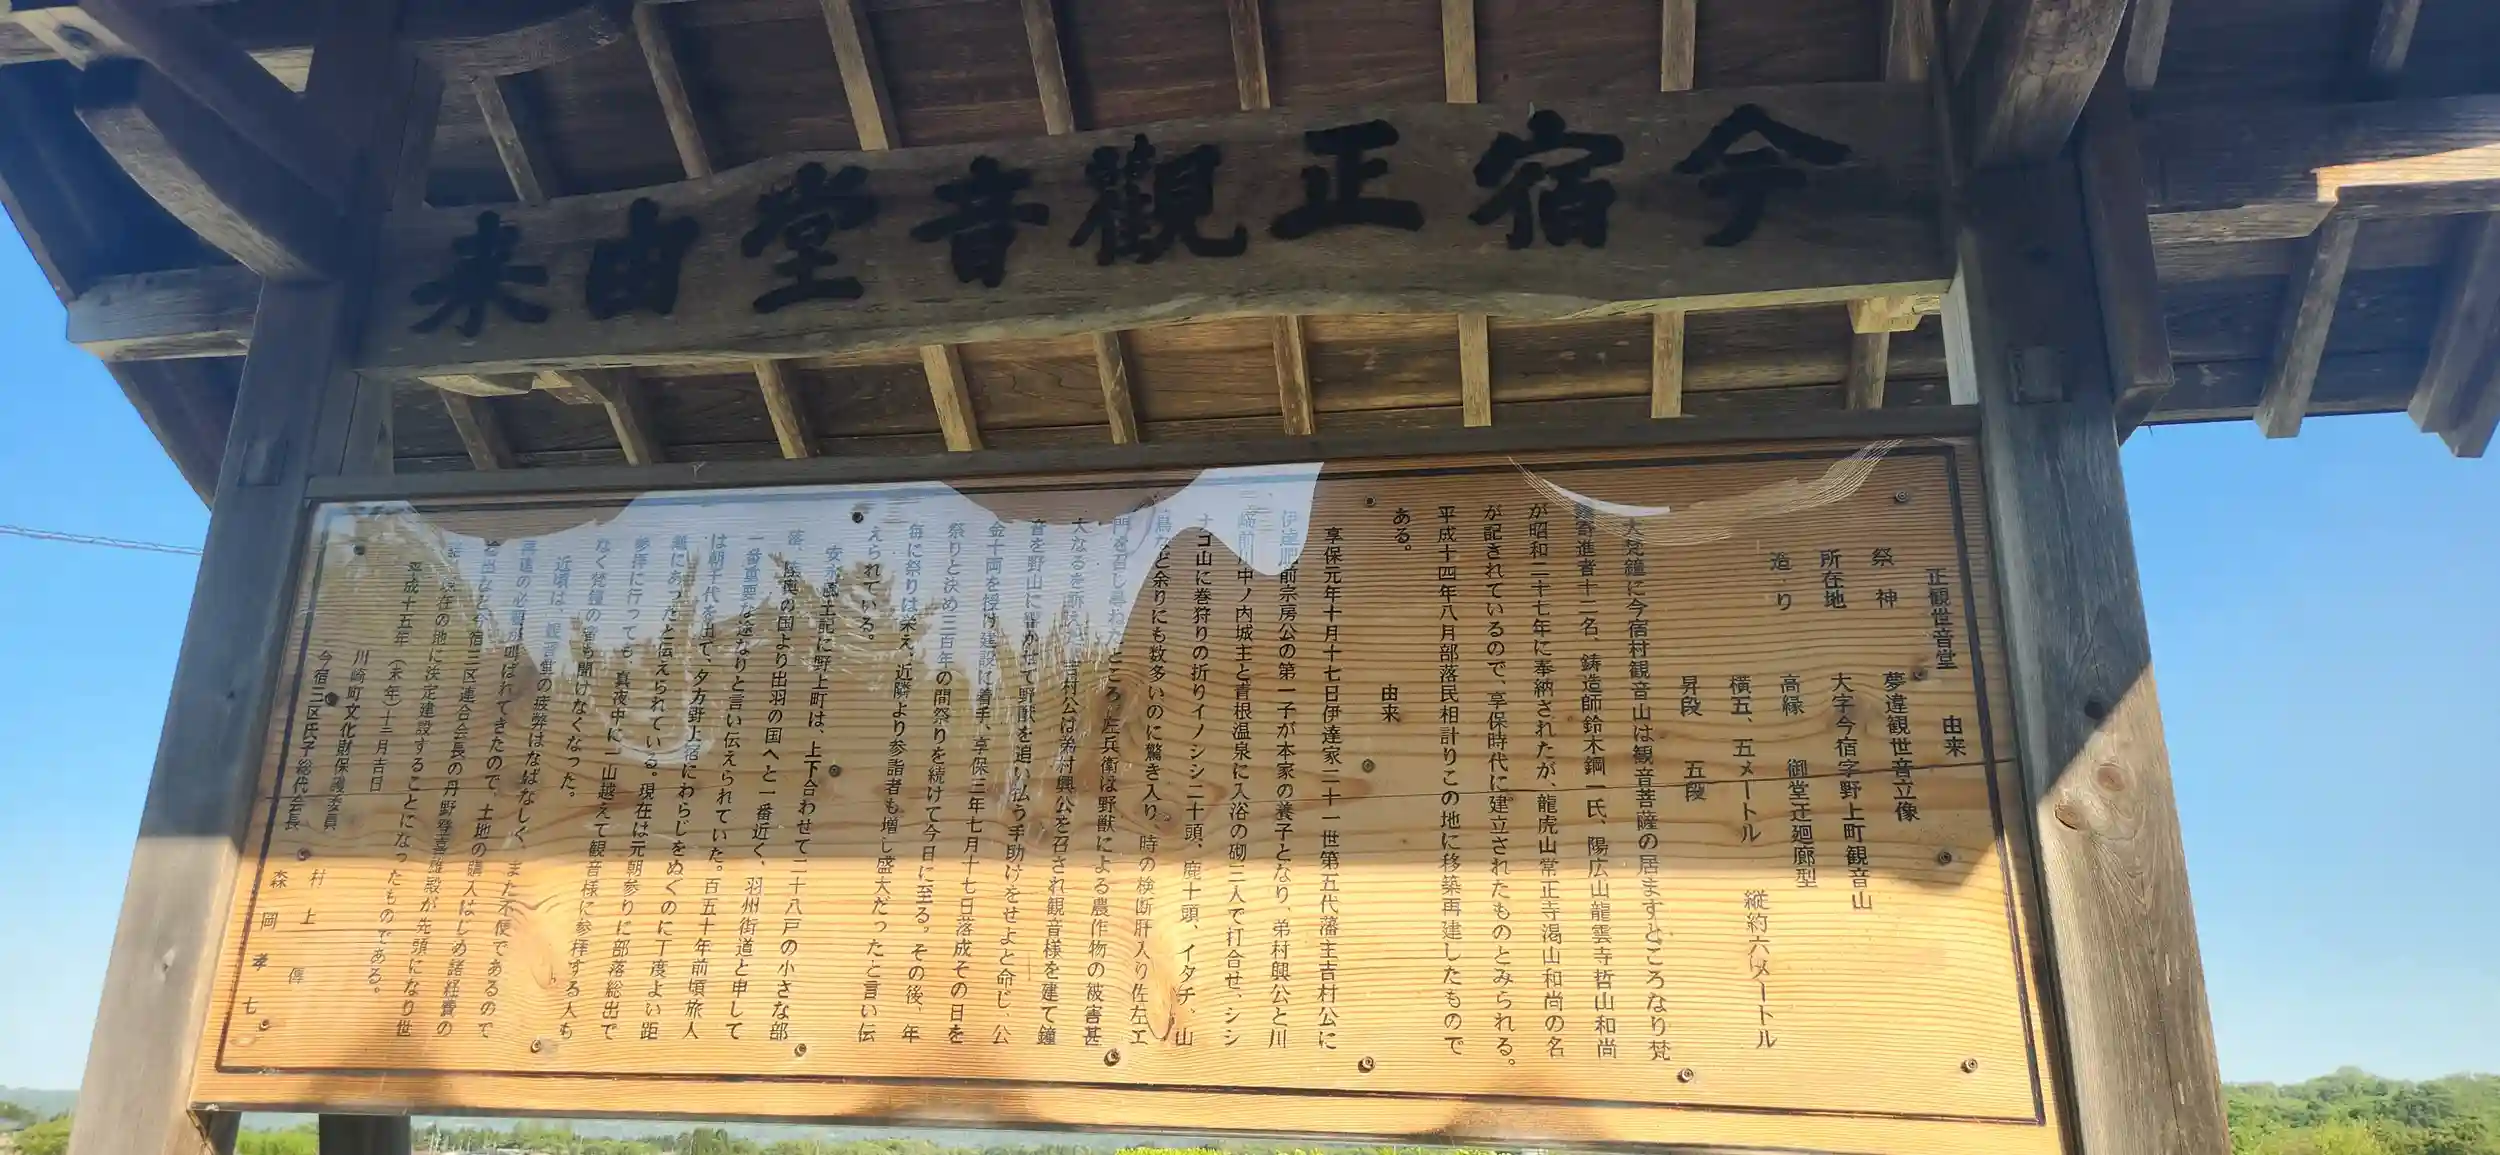 今宿正観音堂由来
正観世音堂 由来
祭神 夢違観世音立像
所在地 大字今宿字野上町観音山
造り 高縁 御堂迂廻廊型
横五、五メートル 縦約六メートル
昇段 五段
大梵鐘に今宿村観音山は観音菩薩の居ますところなり梵
鐘寄進者十二名、鋳造師鈴木鋼一氏、陽広山龍雲寺哲山和尚
が昭和二十七年に奉納されたが、龍虎山常正寺渇山和尚の名
が記されているので、享保時代に建立されたものとみられる。
平成十四年八月部落民相計りこの地に移築再建したもので
ある。
由来
享保元年十月十七日伊達家二十一世第五代藩主吉村公に
伊達肥前宗房公の第一子が本家の養子となり、弟村興公と川
崎前川中ノ内城主と青根温泉に入浴の砌三人で打合せ、シシ
ナゴ山に巻狩りの折りイノシシ二十頭、鹿十頭、イタチ、山
鳥など余りにも数多いのに驚き入り、時の検断肝入り佐左エ
門を召し尋ねたところ、左兵衛は野獣による農作物の被害甚
大なるを訴え、吉村公は弟村興公を召され観音様を建て鐘
音を野山に響かせて野獣を追い払う手助けをせよと命じ、公
金十両を授け建設に着手、享保三年七月十七日落成その日を
祭りと決め三百年の間祭りを続けて今日に至る。その後、年
毎に祭りは栄え、近隣より参詣者も増し盛大だったと言い伝
えられている。
安永風土記に野上町は、上下合わせて二十八戸の小さな部
落、陸奥の国より出羽の国へと一番近く、羽州街道と申して
一番重要な途なりと言い伝えられていた。百五十年前頃旅人
は朝千代を出て、夕方野上宿にわらじをぬぐのに丁度よい距
離にあったと伝えられている。現在は元朝参りに部落総出で
参拝に行っても、真夜中に一山越えて観音様に参拝する人も
なく梵鐘の音も聞けなくなった。
近頃は、観音堂の疲弊はなはなしく、また不便であるので
再建の必要が叫ばれてきたので、土地の購入はじめ諸経費の
捻出など今宿三区連合会長の丹野登喜雄殿が先頭になり世
話し現在の地に決定建設することになったものである。
平成十五年(未年)十二月吉日
川崎町文化財保護委員 村上 傳
今宿三区氏子総代会長 森岡孝七